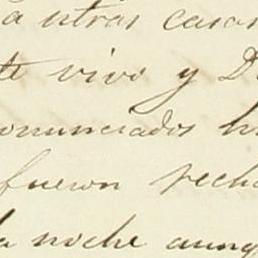 a otras casas
te vivo y D
onunciados h
fueron recha
la noche aunq